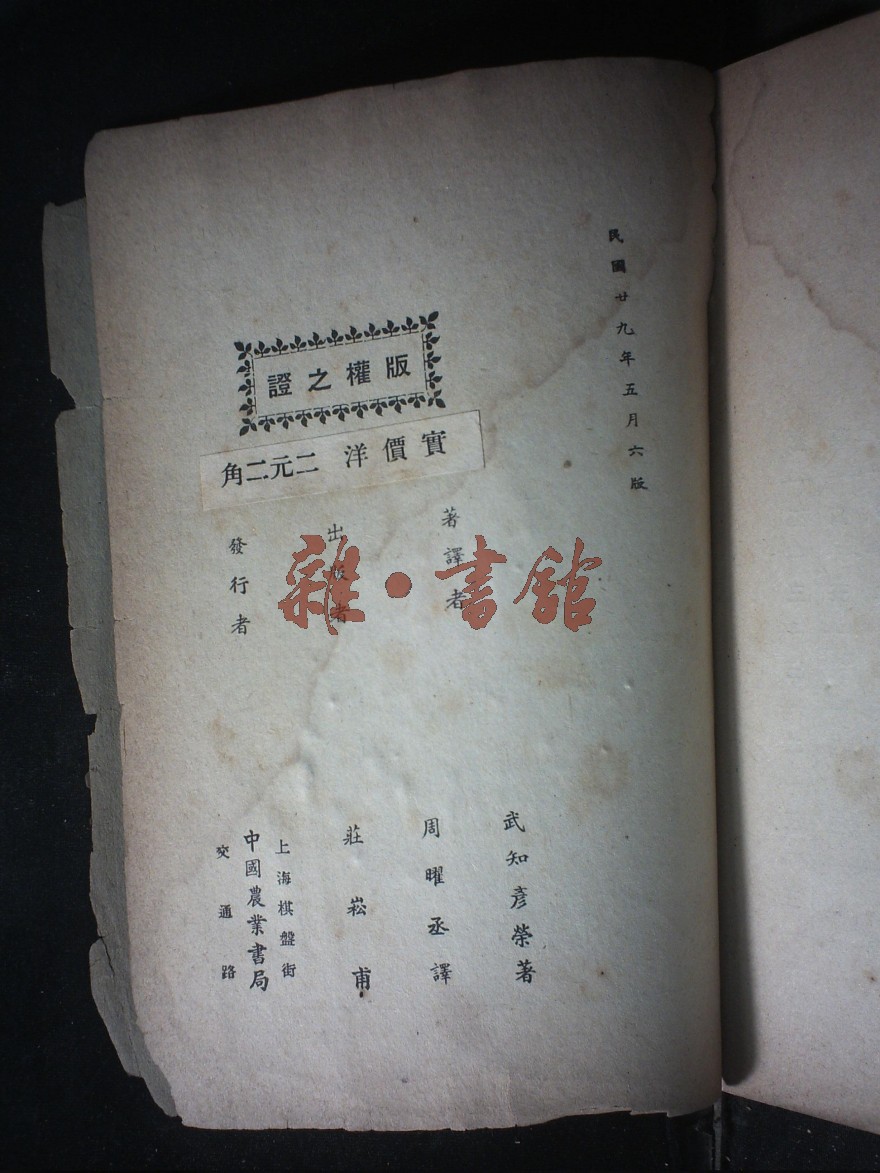 民國廿九年五月六版
版權之證
實價洋 二元二角
著譯者
武知彥榮著
周曜丞譯
出版者
莊崧甫
發行者
上海棋盤街
中國農業書局
交通路
雜·書館